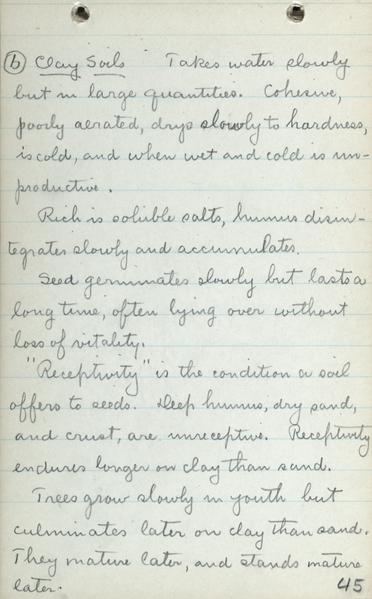 (b) Clay Soils Takes water slowly
but in large quantities. Cohesive,
poorly aerated, drys slowly to hardness,
is cold, and when wet and cold is un-
productive.
Rich is soluble salts, humus disin-
tegrates slowly and accumulates.
Seed germinates slowly but lasts a
long time, often lying over without
loss of vitality.
"Receptivity" is the condition a soil
offers to seeds. Deep humus, dry sand,
and crust, are unreceptive. Receptivity
endures longer on clay than sand.
Trees grow slowly in youth but
culminates later on clay than sand.
They mature later, and stands mature
later.
45